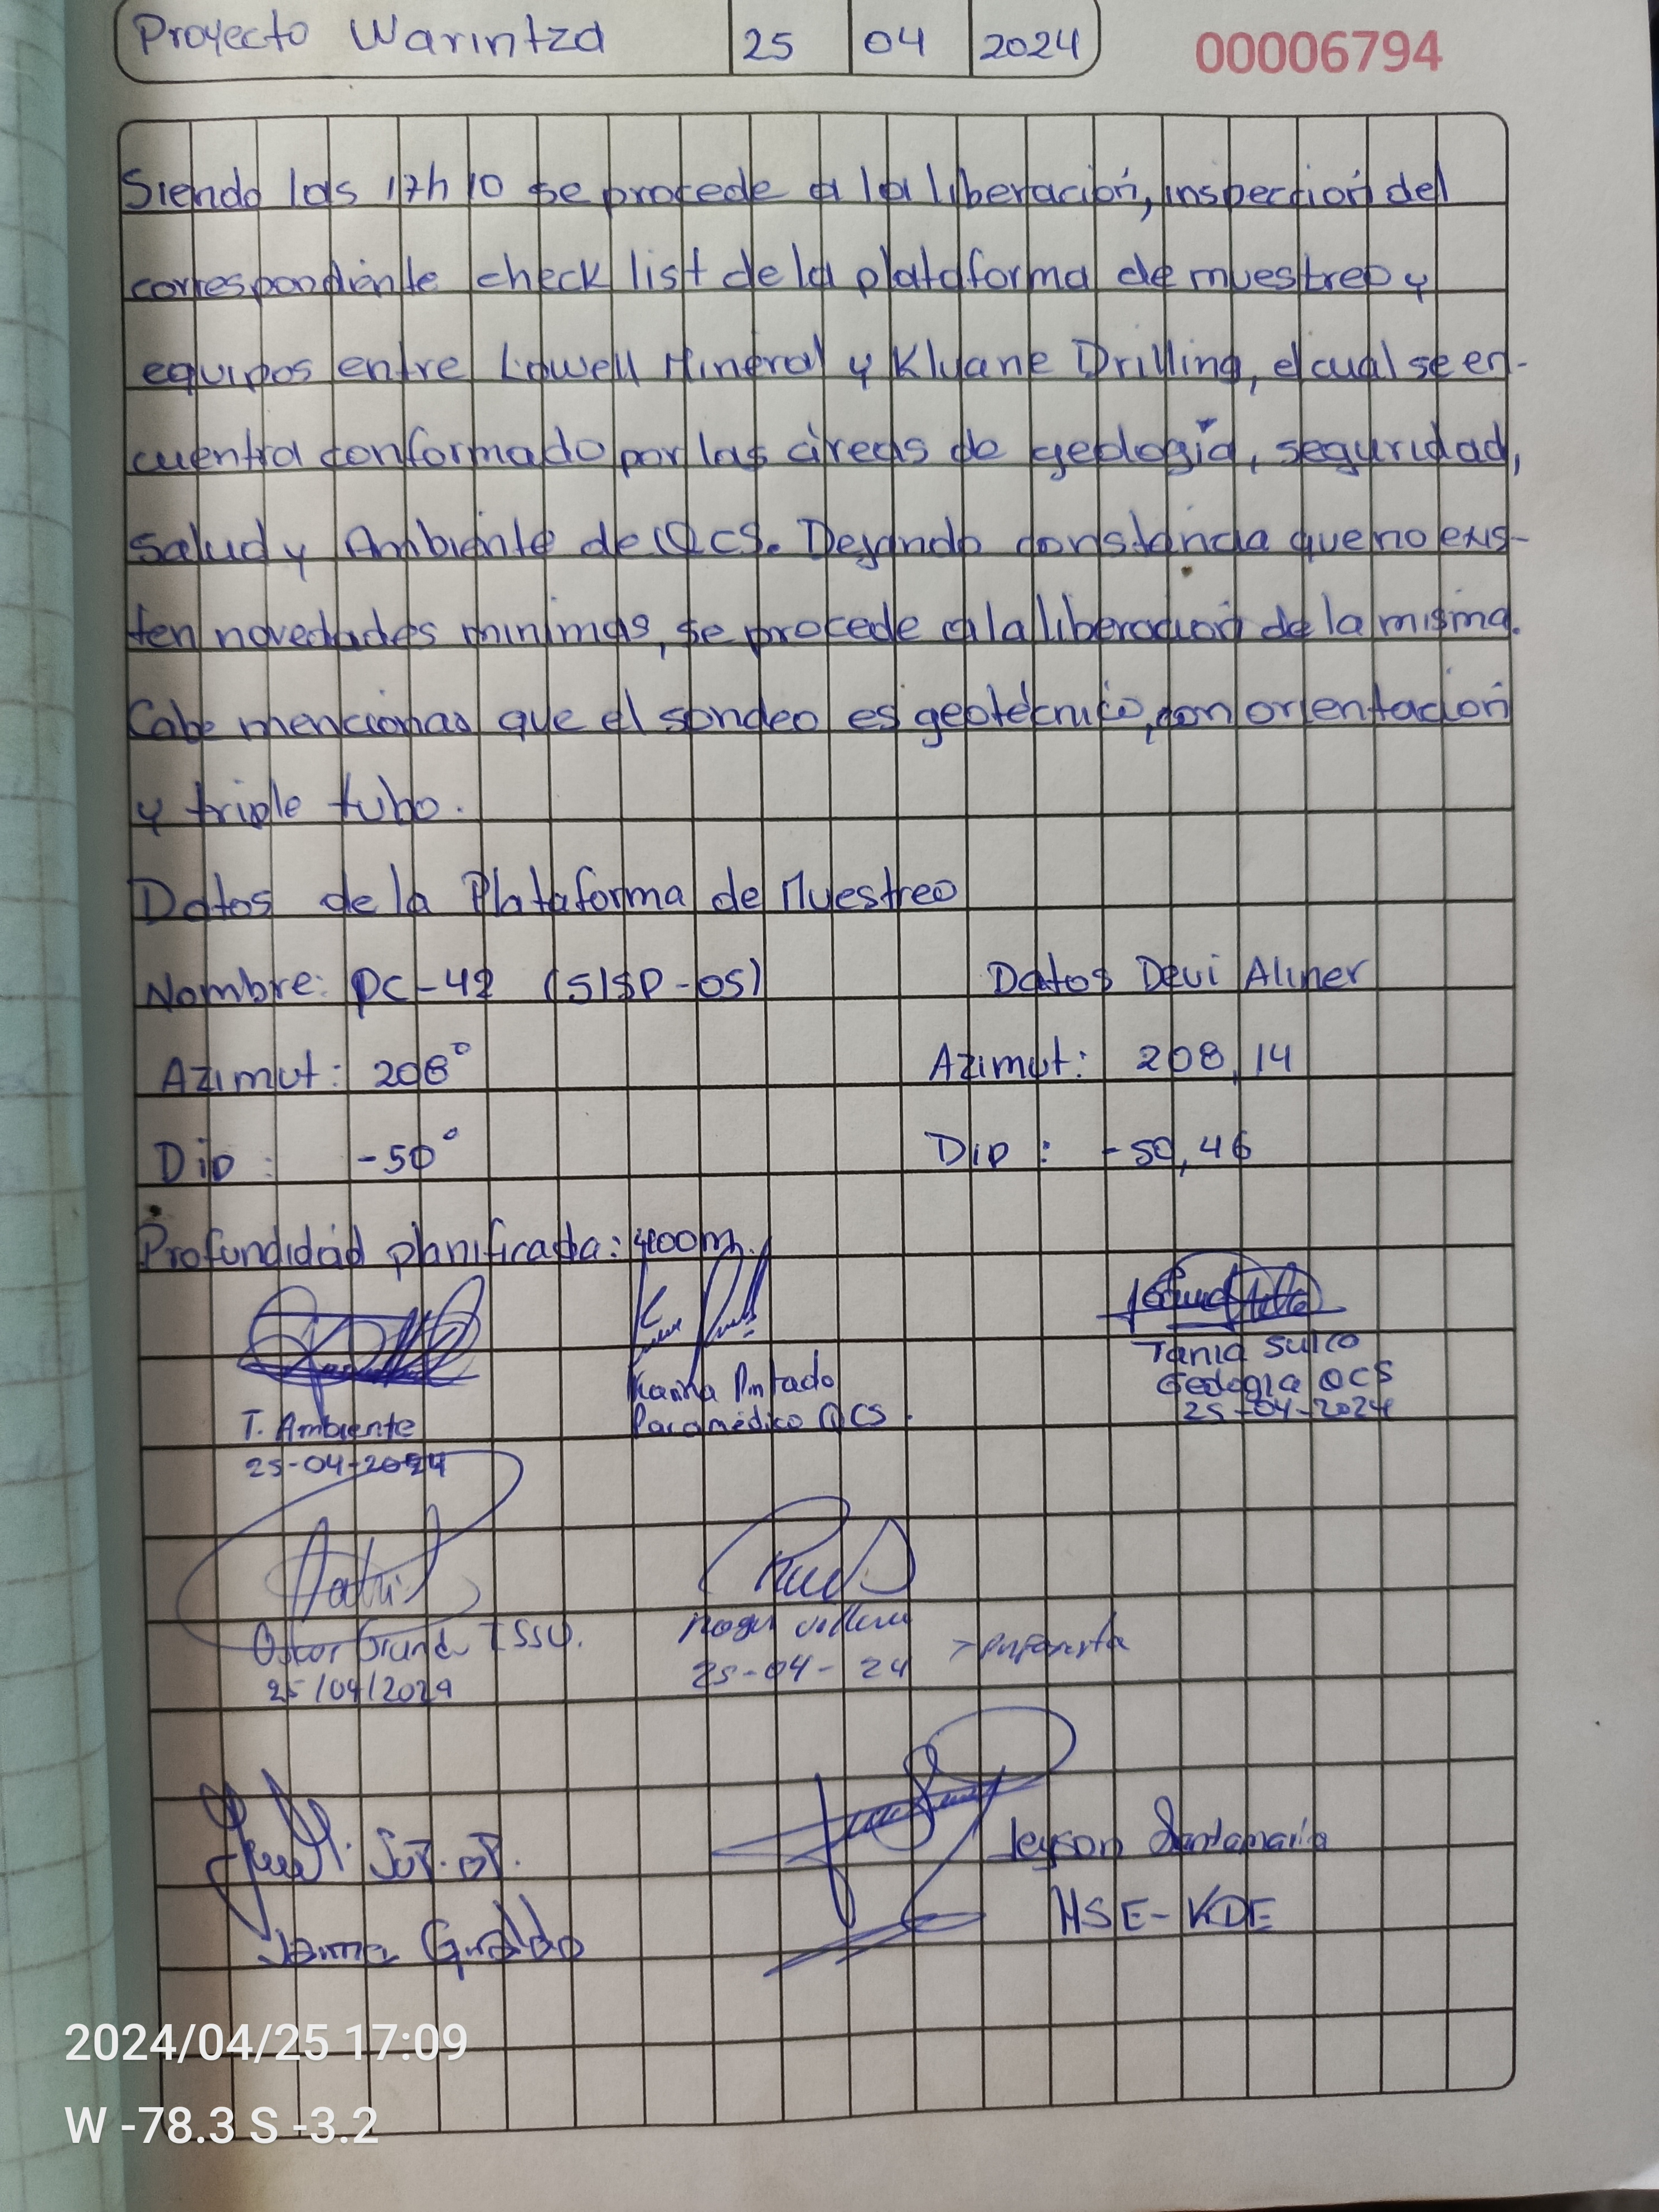 Proyecto Warintza 25 04 2024 00006794
Siendo las 17h10 se procede a la liberación, inspección del
correspondiente check list de la plataforma de muestreo y
equipos entre Lowell Mineral y Kluane Drilling, el cual se en-
cuentra conformado por las áreas de geología, seguridad,
salud y Ambiente de QCS. Dejando constancia que no exis-
ten novedades minimas, se procede a la liberación de la misma.
Cabe mencionar que el sondeo es geotécnico, con orientación
y triple tubo.
Datos de la Plataforma de Muestreo
Nombre: PC-42 (SISP-05) Datos Devi Aliner
Azimut: 208° Azimut: 208,14
Dip : -50° Dip : -50,46
Profundidad planificada: 400m.
Tania Sulco
Geología QCS
25-04-2024
Karina Pintado
Paramédico QCS.
T. Ambiente
25-04-2024
Oscar TSSO.
25/04/2024
Roger
25-04-24
Jeyson Santamaria
HSE-KDE
2024/04/25 17:09
W -78.3 S -3.2